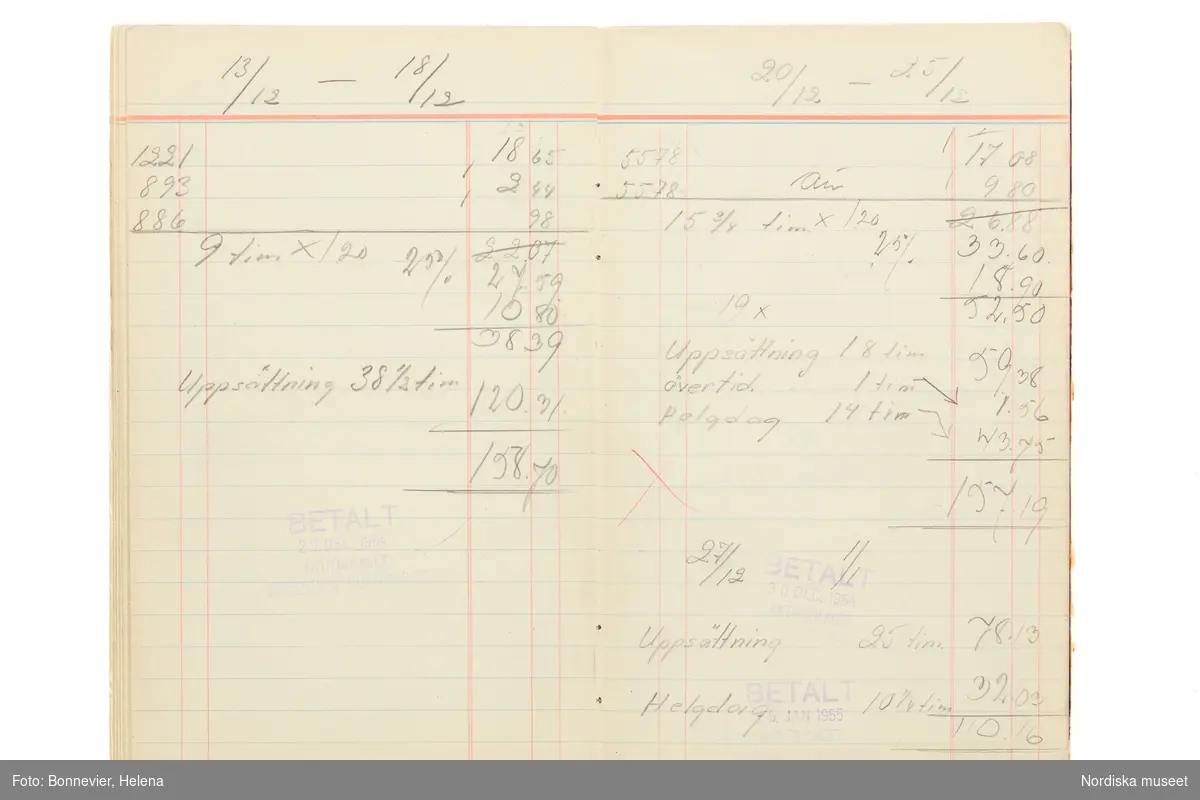 13/12 — 18/12
1221 18 65
893 2 44
886 98
9 tim X 1 20 22.07
25% 27.59
10 80
38 39
Uppsättning 38 1/2 tim 120.31
158.70
BETALT
20/12 — 25/12
5578 17 08
5578 9 80
15 3/4 tim X 1 20 26.88
25% 33.60
18.90
19 x 52.50
Uppsättning 18 tim 59.38
övertid. 1 tim 1.56
Helgdag 14 tim 43.75
157.19
27/12 1/1
BETALT
30 DEC. 1954
Uppsättning 25 tim. 78.13
BETALT
Helgdag 10 1/4 tim 32.03
JAN 1955
110.16
Foto: Bonnevier, Helena
Nordiska museet